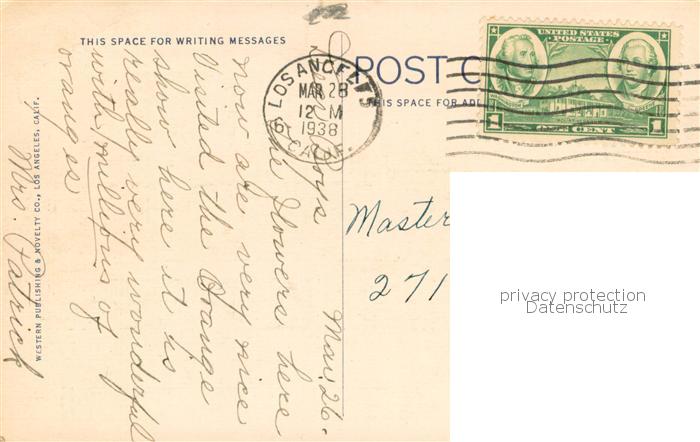 THIS SPACE FOR WRITING MESSAGES
POST C
THIS SPACE FOR AD
UNITED STATES
POSTAGE
1 ONE CENT 1
LOS ANGELES
MAR 28
12 M
1938
CALIF.
Mar. 26.
Boys
The flowers here
now are very nice
Visited the Orange
show here it is
really very wonderful
with millions of
oranges
Mrs. Patrick
WESTERN PUBLISHING & NOVELTY CO., LOS ANGELES, CALIF.
Master
271
privacy protection
Datenschutz